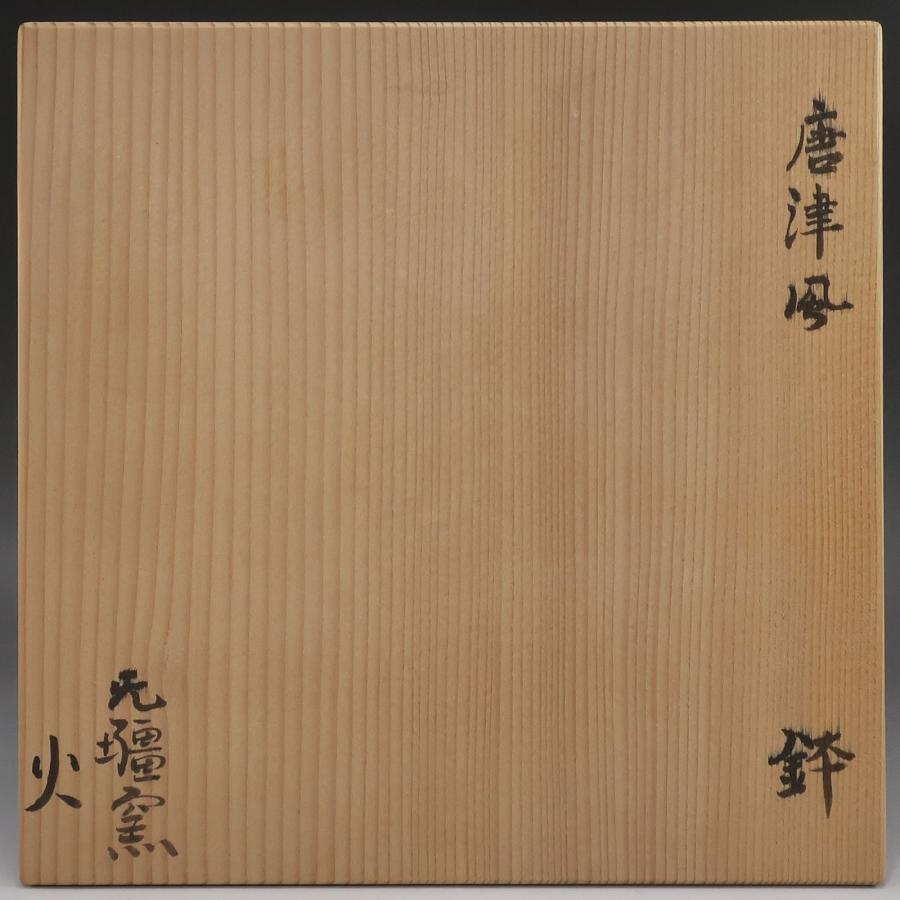 唐津風
鉢
无疆窯
火